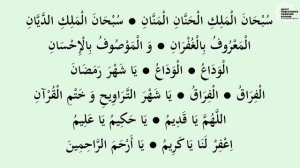 سُبْحَانَ الْمَلِكِ الْحَنَّانِ الْمَنَّانِ ● سُبْحَانَ الْمَلِكِ الدَّيَّانِ
الْمَعْرُوفُ بِالْغُفْرَانِ ● وَ الْمَوْصُوفُ بِالْإِحْسَانِ
الْوَدَاعُ ● الْوَدَاعُ ● يَا شَهْرَ رَمَضَانَ
الْفِرَاقُ ● الْفِرَاقُ ● يَا شَهْرَ التَّرَاوِيحِ وَ خَتْمِ الْقُرْآنِ
اللَّهُمَّ يَا قَدِيمُ ● يَا حَكِيمُ يَا عَلِيمُ
اِغْفِرْ لَنَا يَا كَرِيمُ ● يَا أَرْحَمَ الرَّاحِمِينَ